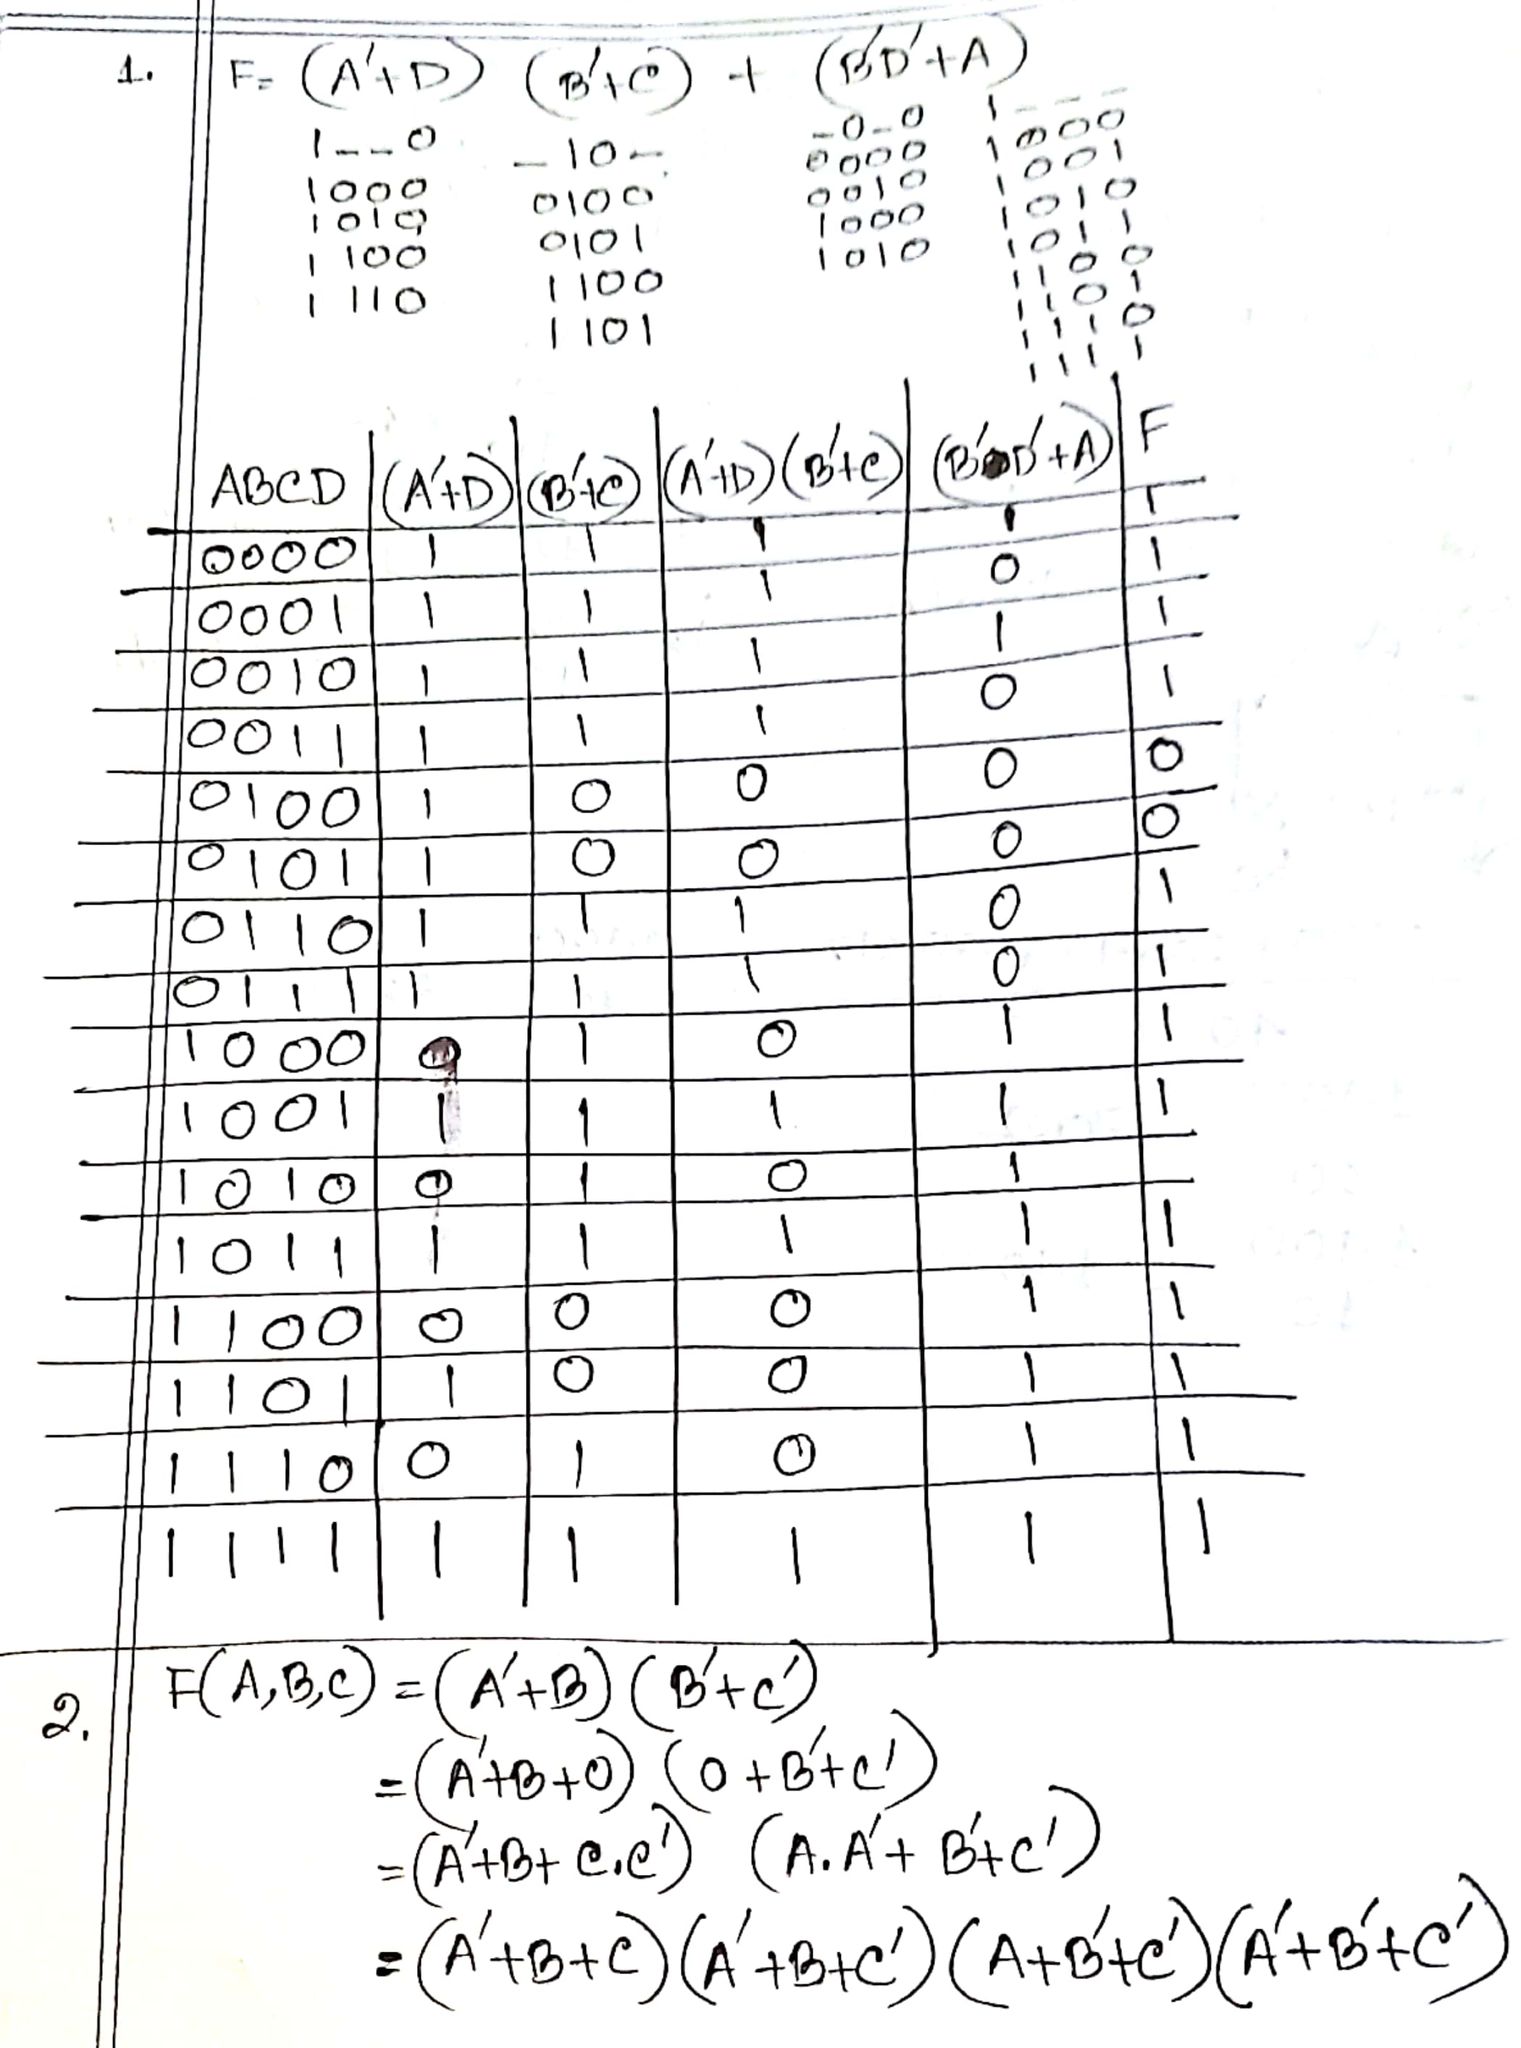 1. F= (A'+D) (B'+C) + (B'D'+A)
1--0 -10- -0-0 1---
1000 0100 0000 1000
1010 0101 0010 1001
1100 1100 1000 1010
1110 1101 1010 1011
1100
1101
1110
1111
ABCD (A'+D) (B'+C) (A'+D)(B'+C) (B'D'+A) F
0000 1 1 1 1 1
0001 1 1 1 0 1
0010 1 1 1 1 1
0011 1 1 1 0 1
0100 1 0 0 0 0
0101 1 0 0 0 0
0110 1 1 1 0 1
0111 1 1 1 0 1
1000 0 1 0 1 1
1001 1 1 1 1 1
1010 0 1 0 1
1011 1 1 1 1 1
1100 0 0 0 1 1
1101 1 0 0 1 1
1110 0 1 0 1 1
1111 1 1 1 1 1
2. F(A,B,C) = (A'+B) (B'+C')
= (A'+B+0) (0+B'+C')
= (A'+B+C.C') (A.A'+B'+C')
= (A'+B+C)(A'+B+C')(A+B'+C')(A'+B'+C')